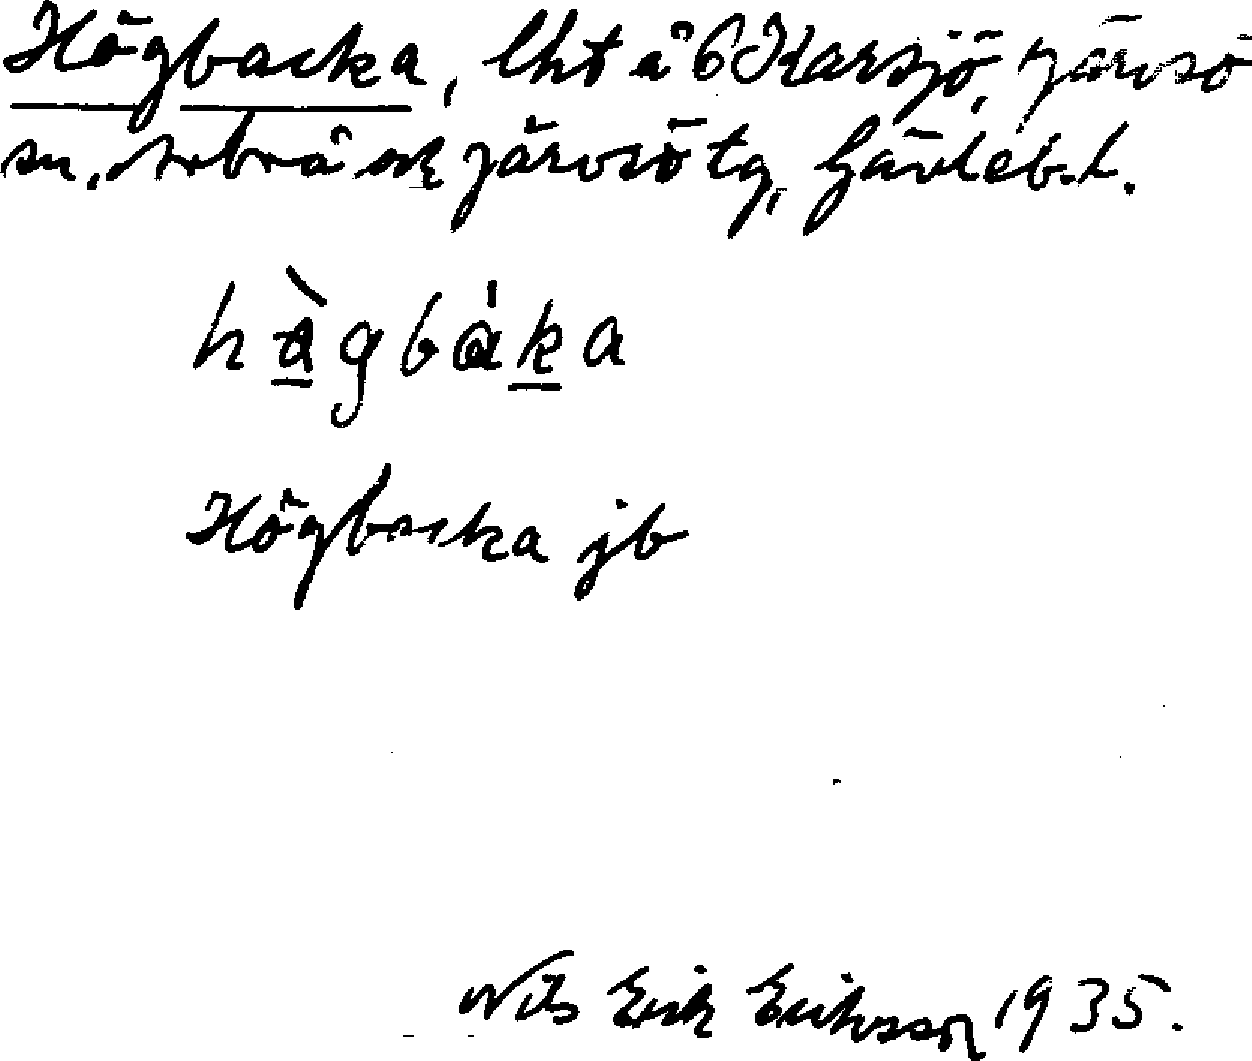 Högbacka, lht å 6 Karsjö, Järvsö
sn, Arbrå och Järvsö tg, Gävleb. l.
hågbaka
Högbacka jb
Nils Erik Eriksson 1935.